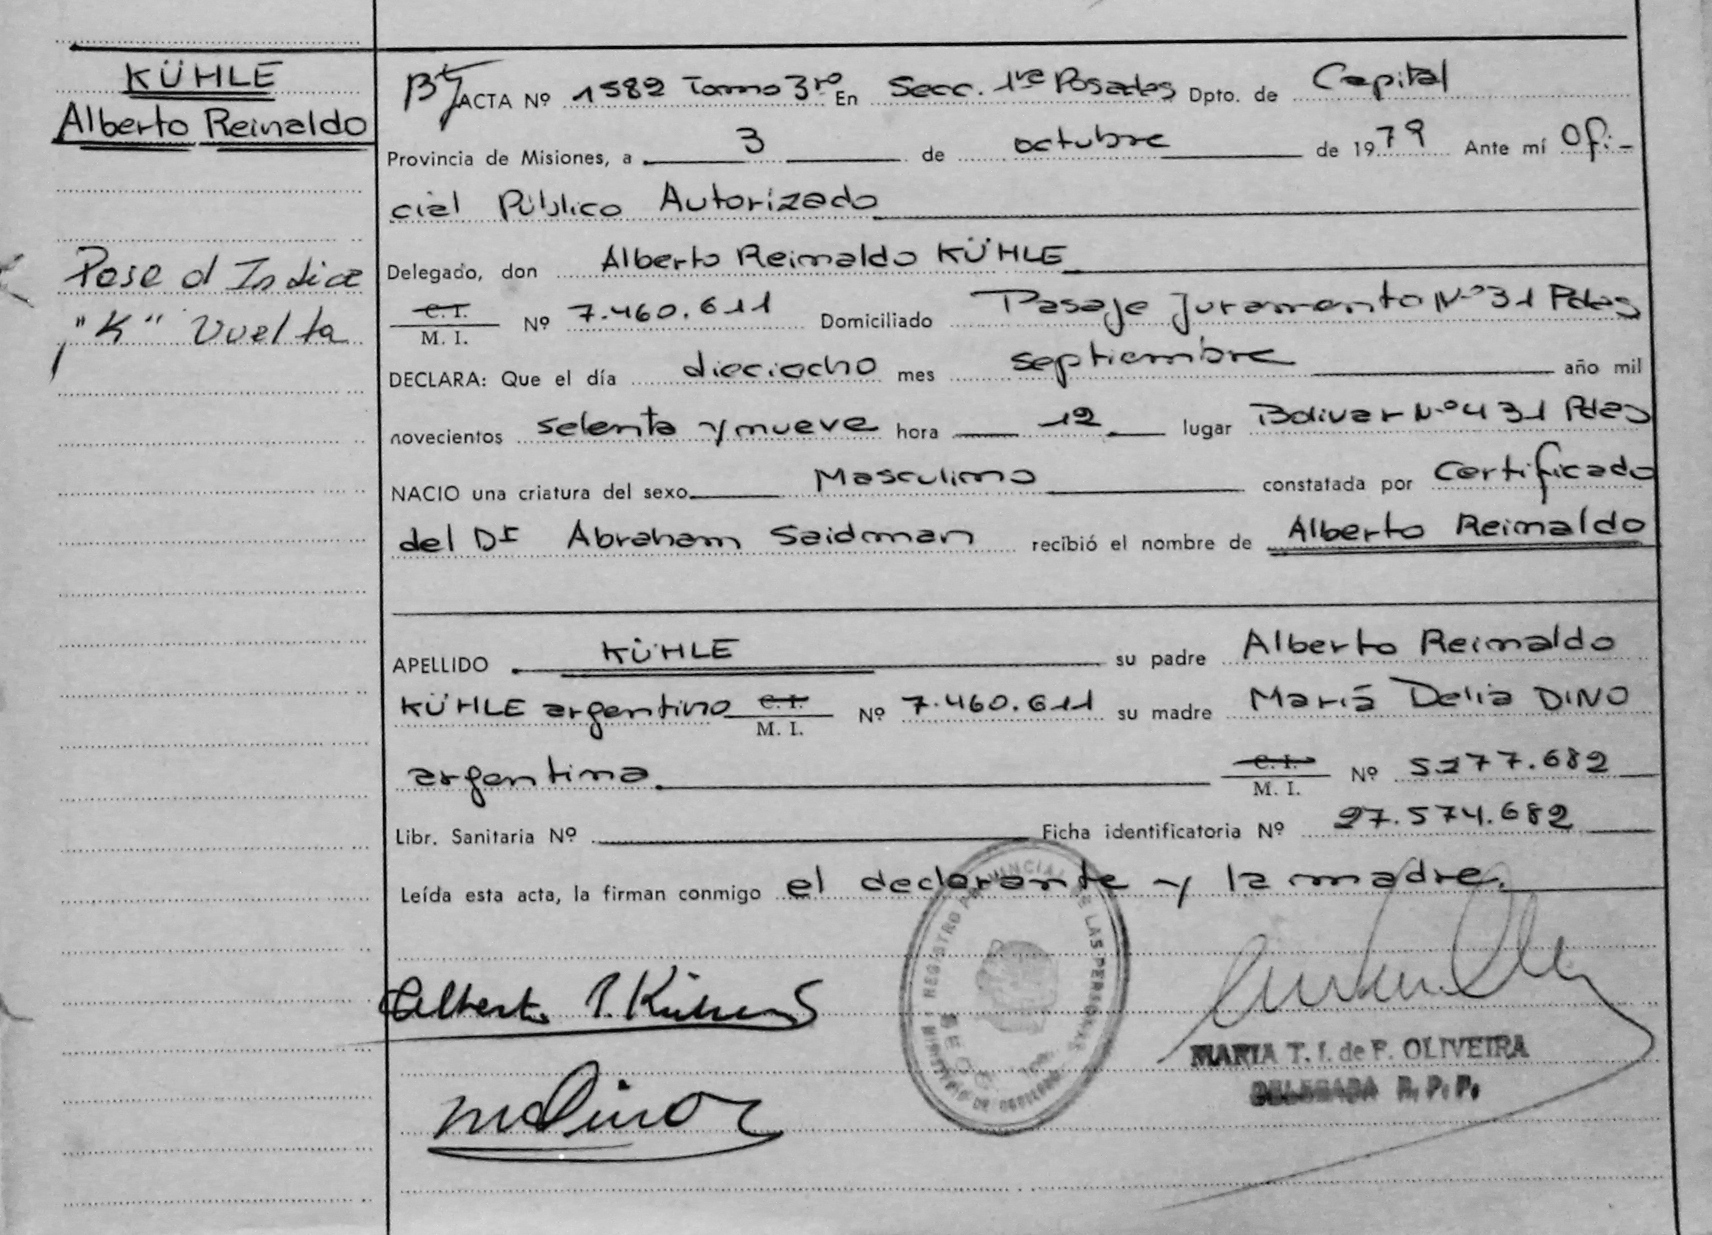 KÜHLE
Alberto Reinaldo
Pose al Indice
"K" Vuelta
ACTA Nº 1582 Tomo 3ro En Secc. 1ra Posadas Dpto. de Capital
Provincia de Misiones, a 3 de octubre de 1979 Ante mí Ofi-
cial Público Autorizado
Delegado, don Alberto Reinaldo KÜHLE
C. I.
M. I. Nº 7.460.611 Domiciliado Pasaje Juramento Nº 31 Pdas
DECLARA: Que el día dieciocho mes septiembre año mil
novecientos setenta y nueve hora 12 lugar Bolivar Nº 431 Pdas
NACIO una criatura del sexo Masculino constatada por certificado
del Dr Abraham Saidman recibió el nombre de Alberto Reinaldo
APELLIDO KÜHLE su padre Alberto Reinaldo
KÜHLE argentino C. I. M. I. Nº 7.460.611 su madre María Delia DINO
argentina C. I. M. I. Nº 5.277.682
Libr. Sanitaria Nº Ficha identificatoria Nº 27.574.682
Leída esta acta, la firman conmigo el declarante y la madre.
REGISTRO PROVINCIAL DE LAS PERSONAS
MINISTERIO DE GOBIERNO
MARIA T. I. de F. OLIVEIRA
DELEGADA R. P. P.